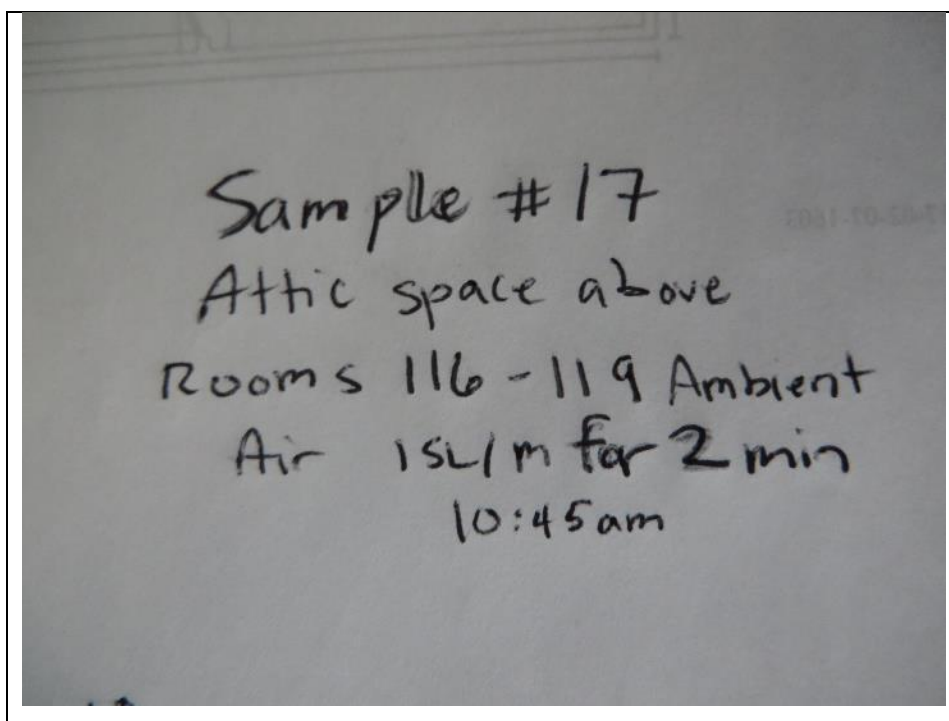 Sample #17
Attic space above
Rooms 116-119 Ambient
Air 15L/m for 2 min
10:45am